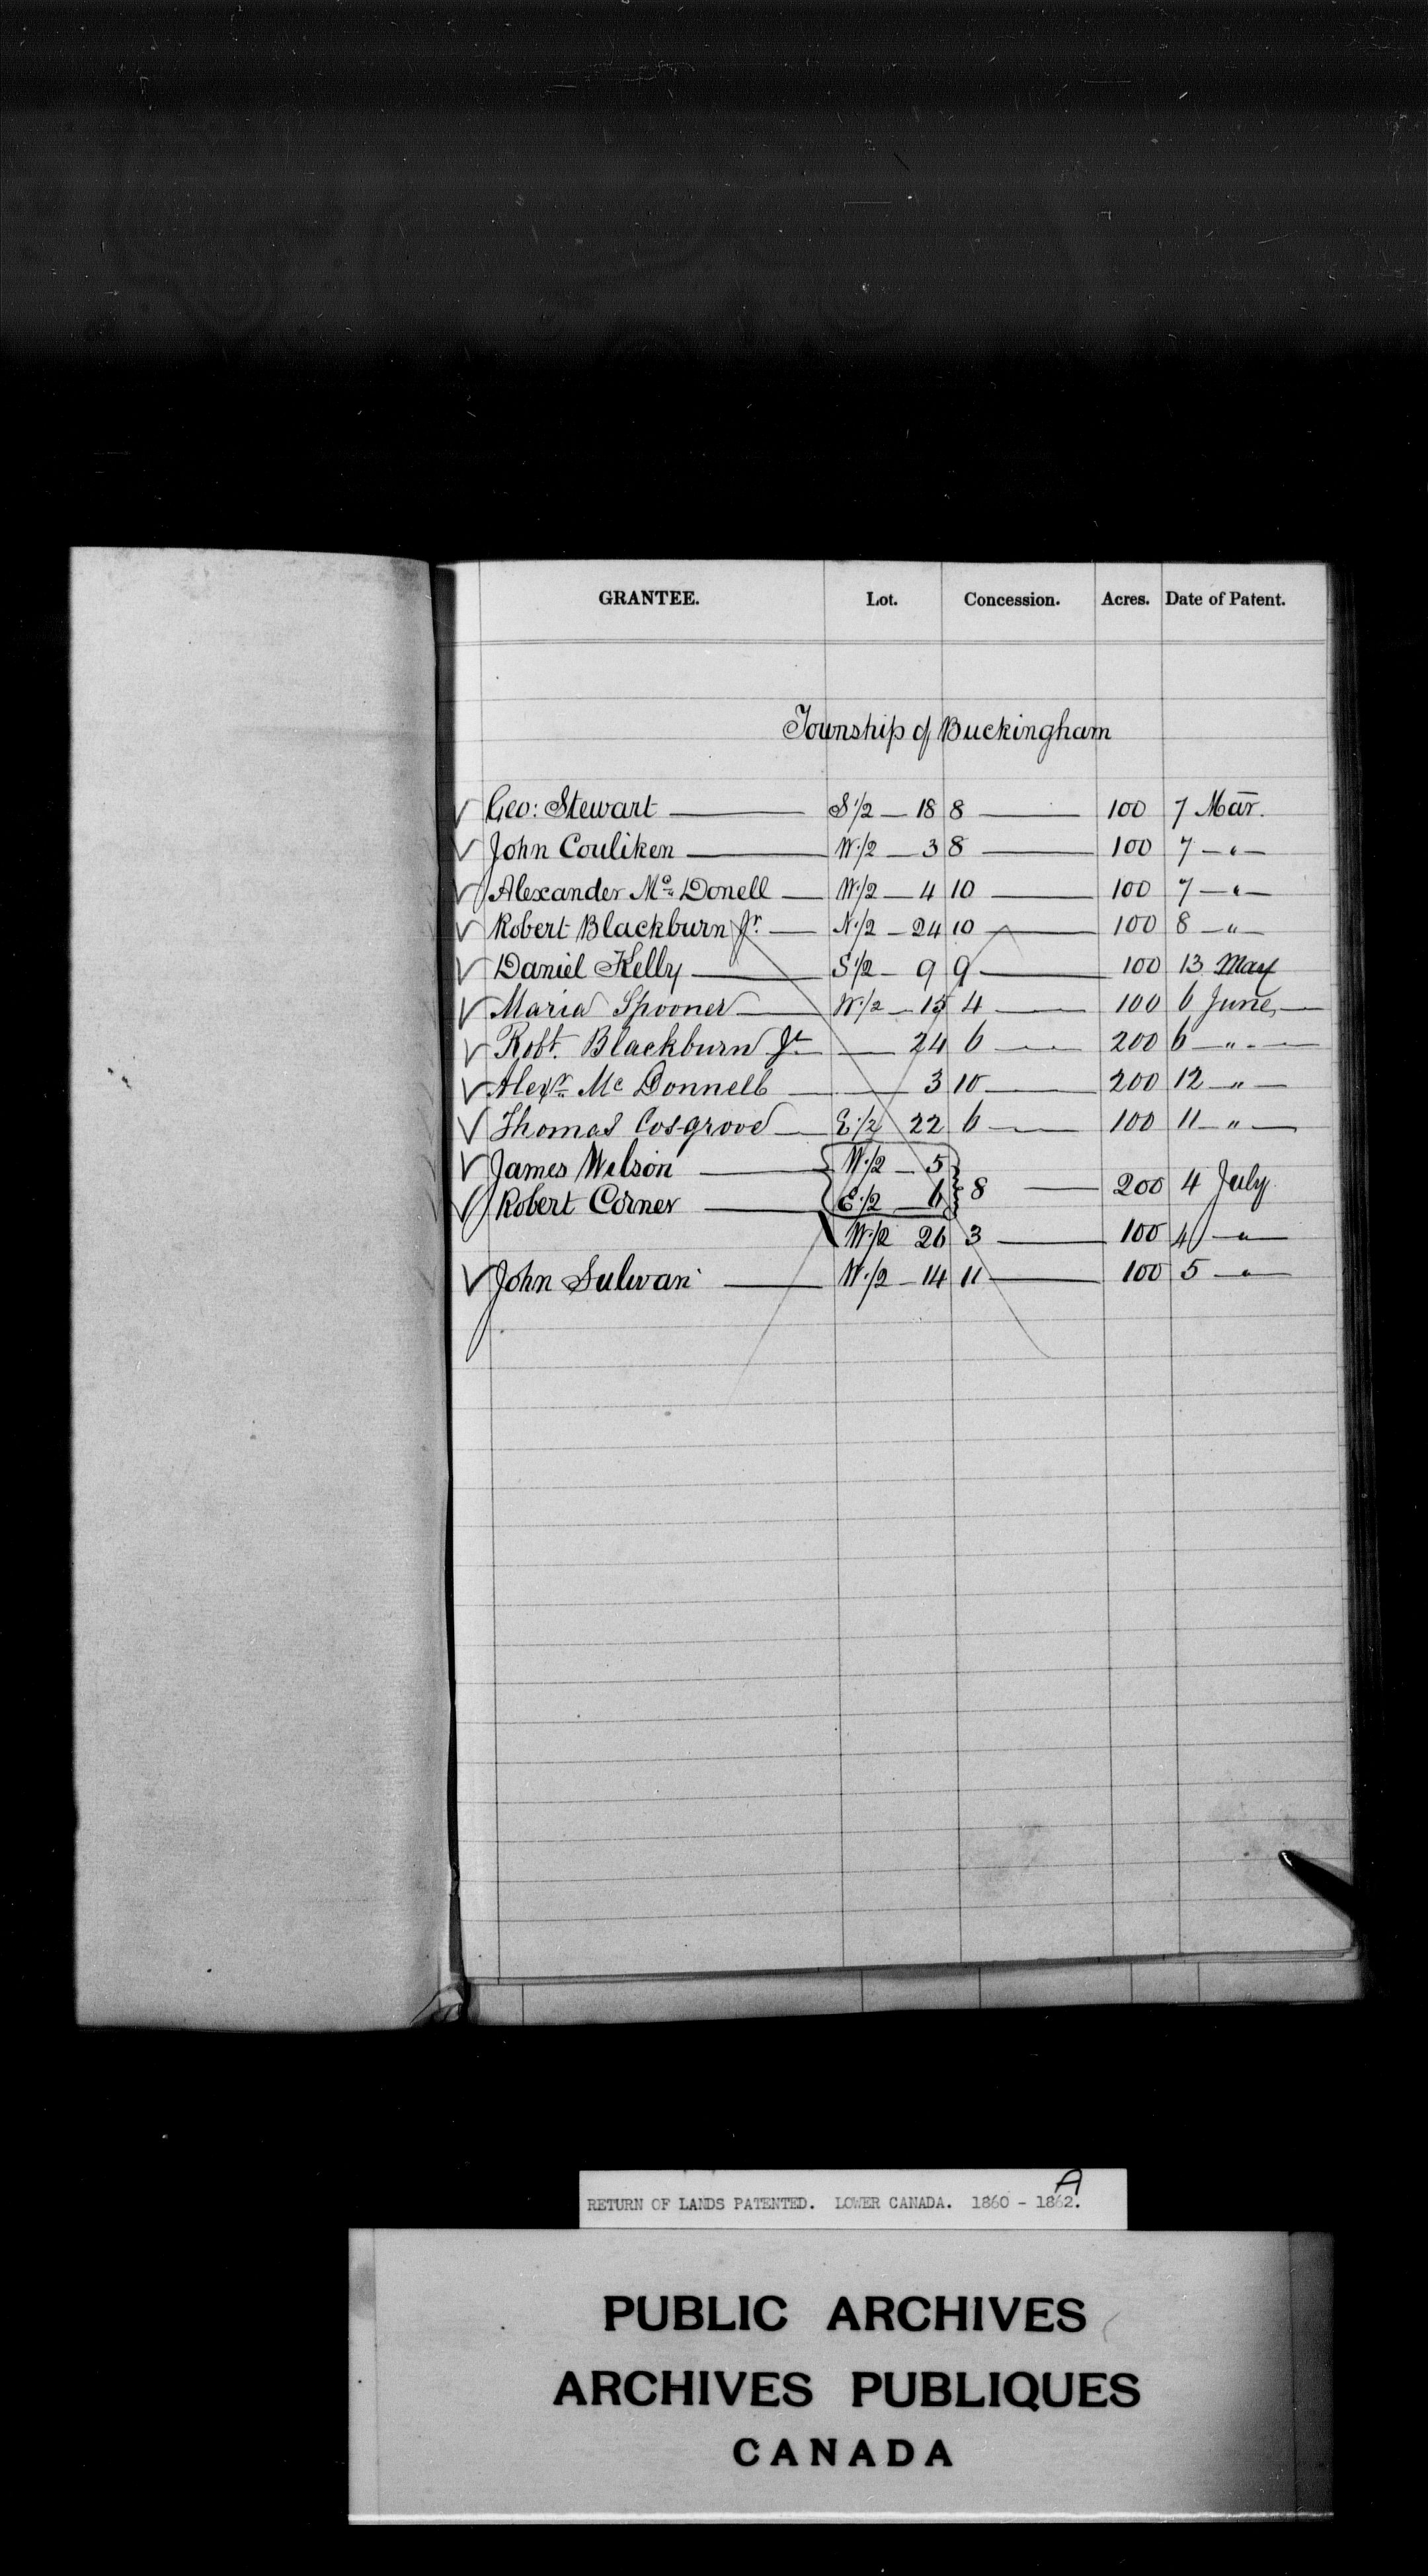 GRANTEE. Lot. Concession. Acres. Date of Patent.
Township of Buckingham
√ Geo: Stewart — S 1/2 — 18 8 — 100 7 Mar.
√ John Couliken — W. 1/2 — 3 8 — 100 7 — " —
√ Alexander Mc Donell — W 1/2 — 4 10 — 100 7 — " —
√ Robert Blackburn Jr. — N. 1/2 — 24 10 — 100 8 — " —
√ Daniel Kelly — S 1/2 — 9 9 — 100 13 May
√ Maria Spooner — W. 1/2 — 15 4 — 100 6 June —
√ Robt. Blackburn Jr — 24 6 — 200 6 — " —
√ Alexr. Mc Donnell — 3 10 — 200 12 — " —
√ Thomas Cosgrove — E. 1/2 22 6 — 100 11 — " —
√ James Wilson — { W. 1/2 — 5 }
√ Robert Corner — { E. 1/2 — 6 } 8 — 200 4 July
W. 1/2 26 3 — 100 4 — " —
√ John Sulivan — W. 1/2 — 14 11 — 100 5 — " —
A
RETURN OF LANDS PATENTED. LOWER CANADA. 1860 - 1862.
PUBLIC ARCHIVES
ARCHIVES PUBLIQUES
CANADA